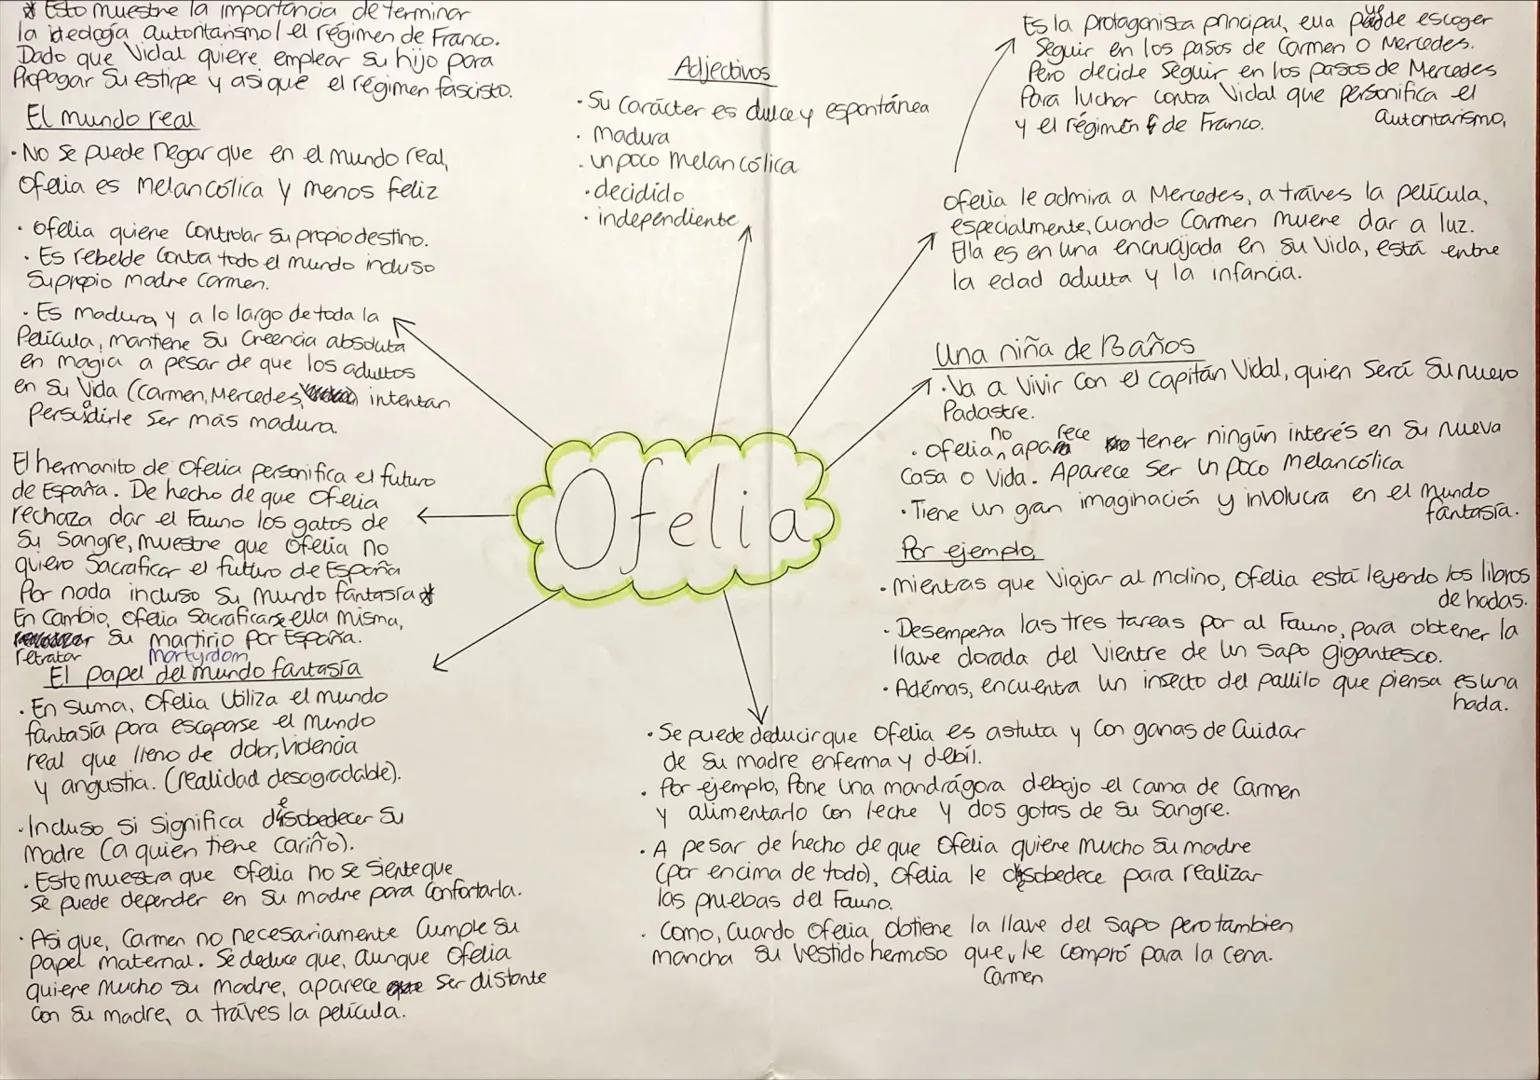 * Esto muestre la importancia de terminar
la ideología autoritarismo/el régimen de Franco.
Dado que Vidal quiere emplear su hijo para
Propagar su estirpe y asi que el régimen fascisto.
El mundo real
· No se puede negar que en el mundo real,
Ofelia es melancólica y menos feliz
· Ofelia quiere controlar su propio destino.
· Es rebelde contra todo el mundo incluso
su propio madre Carmen.
· Es madura y a lo largo de toda la
Película, mantiene su creencia absoluta
en magia a pesar de que los adultos
en su vida (Carmen, Mercedes, intentan
persuadirle ser más madura.
El hermanito de Ofelia personifica el futuro
de España. De hecho de que Ofelia
rechaza dar el Fauno los gatos de
su sangre, muestre que Ofelia no
quiero sacraficar el futuro de España
Por nada incluso su mundo fantasía *
En cambio, Ofelia sacraficarse ella misma,
retratar su martirio por España.
martyrdom
El papel del mundo fantasía
· En suma, Ofelia utiliza el mundo
fantasía para escaparse el mundo
real que lleno de dolor, violencia
y angustia. (realidad desagradable).
· Incluso si significa desobedecer su
madre (a quien tiene cariño).
· Esto muestra que Ofelia no se siente que
se puede depender en su madre para confortarla.
· Asi que, Carmen no necesariamente cumple su
papel maternal. Se deduce que, aunque Ofelia
quiere mucho su madre, aparece ser distante
con su madre, a tráves la película.
Adjectivos
· Su carácter es dulce y espontánea
· madura
· un poco melancólica
· decidido
· independiente
Ofelia
Es la protagonista principal, ella puede escoger
seguir en los pasos de Carmen o Mercedes.
Pero decide seguir en los pasos de Mercedes
Para luchar contra Vidal que personifica el
autoritarismo,
y el régimen de Franco.
Ofelia le admira a Mercedes, a tráves la película,
especialmente, cuando Carmen muere dar a luz.
Ella es en una encrucijada en su vida, está entre
la edad adulta y la infancia.
Una niña de 13 años
· Va a vivir con el capitán Vidal, quien será su nuevo
Padastre.
· Ofelia no aparece tener ningún interés en su nueva
casa o vida. Aparece ser un poco melancólica
· Tiene un gran imaginación y involucra en el mundo
fantasía.
Por ejemplo,
· mientras que viajar al molino, Ofelia está leyendo los libros
de hadas.
· Desempeña las tres tareas por al Fauno, para obtener la
llave dorada del vientre de un sapo gigantesco.
· Adémas, encuentra un insecto del pallilo que piensa es una
hada.
· Se puede deducir que Ofelia es astuta y con ganas de cuidar
de su madre enferma y debíl.
· Por ejemplo, Pone una mandrágora debajo el cama de Carmen
y alimentarlo con leche y dos gotas de su sangre.
· A pesar de hecho de que Ofelia quiere mucho su madre
(por encima de todo), Ofelia le desobedece para realizar
las pruebas del Fauno.
· Como, cuando Ofelia obtiene la llave del sapo pero tambien
mancha su vestido hermoso que Carmen le compró para la cena.